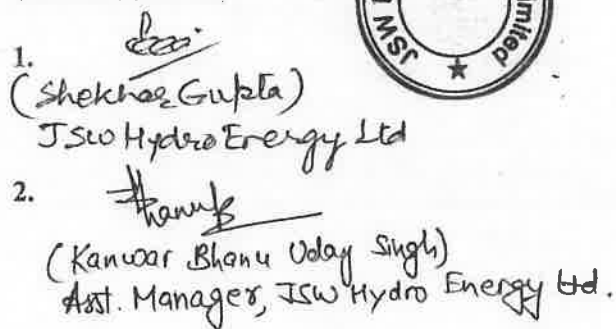 JSW
Limited
★
1.
(Shekhar Gupta)
JSW Hydro Energy Ltd
2.
(Kanwar Bhanu Uday Singh)
Asst. Manager, JSW Hydro Energy Ltd.